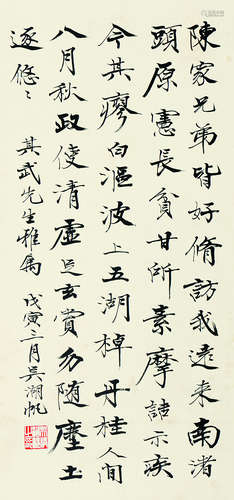 陳家兄弟皆好脩訪我遠來南渚
頭原憲長貧甘所素摩詰示疾
今其瘳向漚波上五湖棹丹桂人間
八月秋政使清虛足玄賞勿隨塵土
逐悠〻
其武先生雅屬 戊寅三月吳湖帆